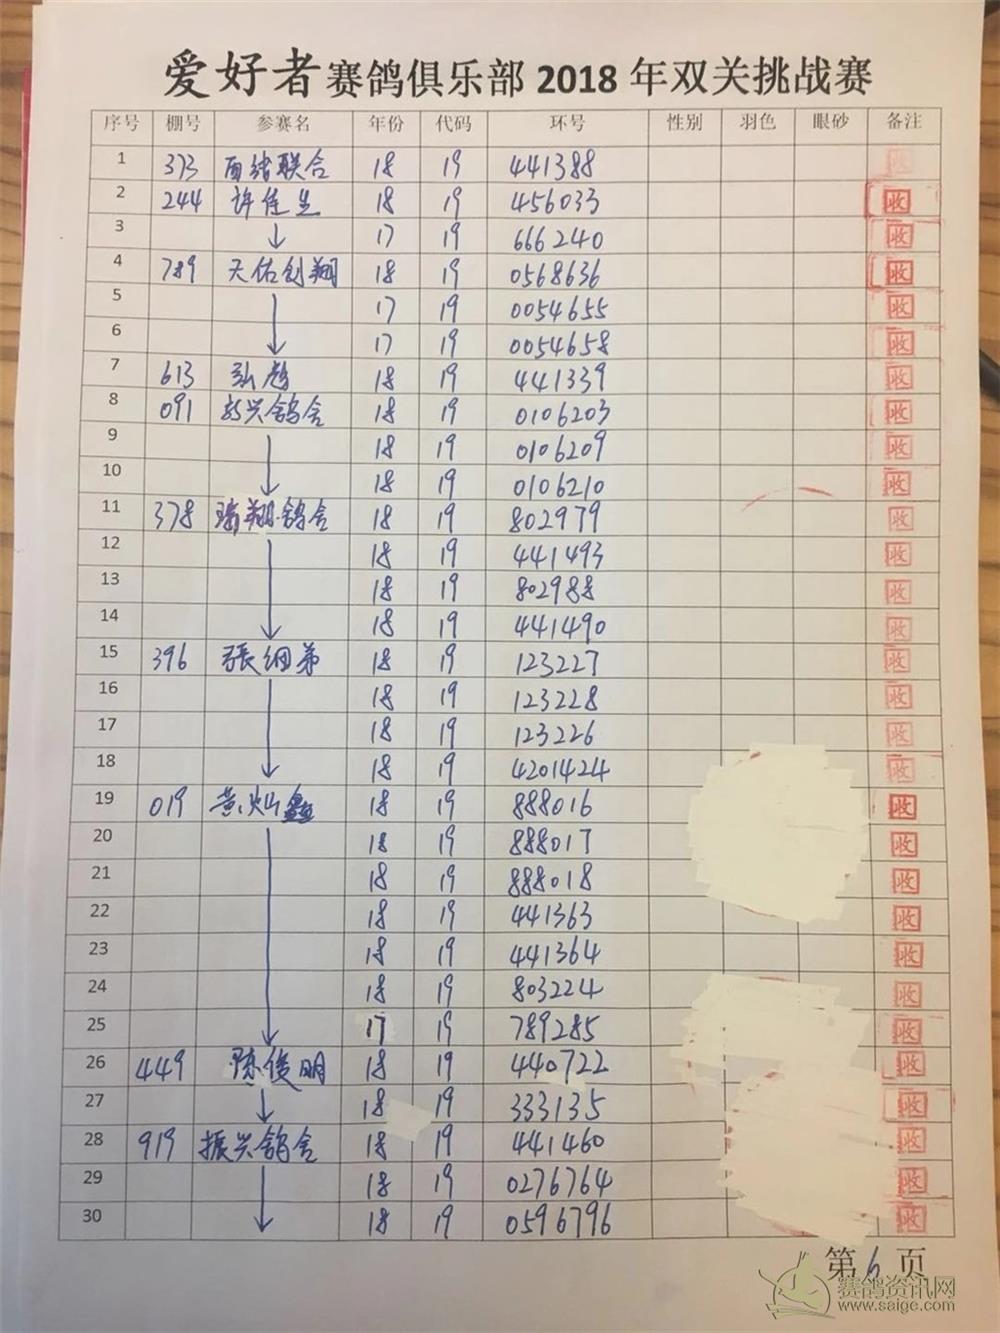 爱好者赛鸽俱乐部 2018 年双关挑战赛
序号 棚号 参赛名 年份 代码 环号 性别 羽色 眼砂 备注
1 373 联合 18 19 441388 收
2 244 许佳生 18 19 456033 收
3 ↓ 17 19 666240 收
4 789 天佑创翔 18 19 0568636 收
5 17 19 0054655 收
6 ↓ 17 19 0054658 收
7 613 弘 18 19 441339 收
8 091 兴鸽舍 18 19 0106203 收
9 18 19 0106209 收
10 ↓ 18 19 0106210 收
11 378 瑞翔鸽舍 18 19 802979 收
12 18 19 441493 收
13 18 19 802988 收
14 ↓ 18 19 441490 收
15 396 张细弟 18 19 123227 收
16 18 19 123228 收
17 18 19 123226 收
18 ↓ 18 19 4201424 收
19 019 黄灿鑫 18 19 888016 收
20 18 19 888017 收
21 18 19 888018 收
22 18 19 441363 收
23 18 19 441364 收
24 18 19 803224 收
25 ↓ 17 19 789285 收
26 449 陈俊明 18 19 440722 收
27 ↓ 18 19 333135 收
28 919 振兴鸽舍 18 19 441460 收
29 18 19 0276764 收
30 ↓ 18 19 0596796 收
第 6 页
赛鸽资讯网
www.saige.com